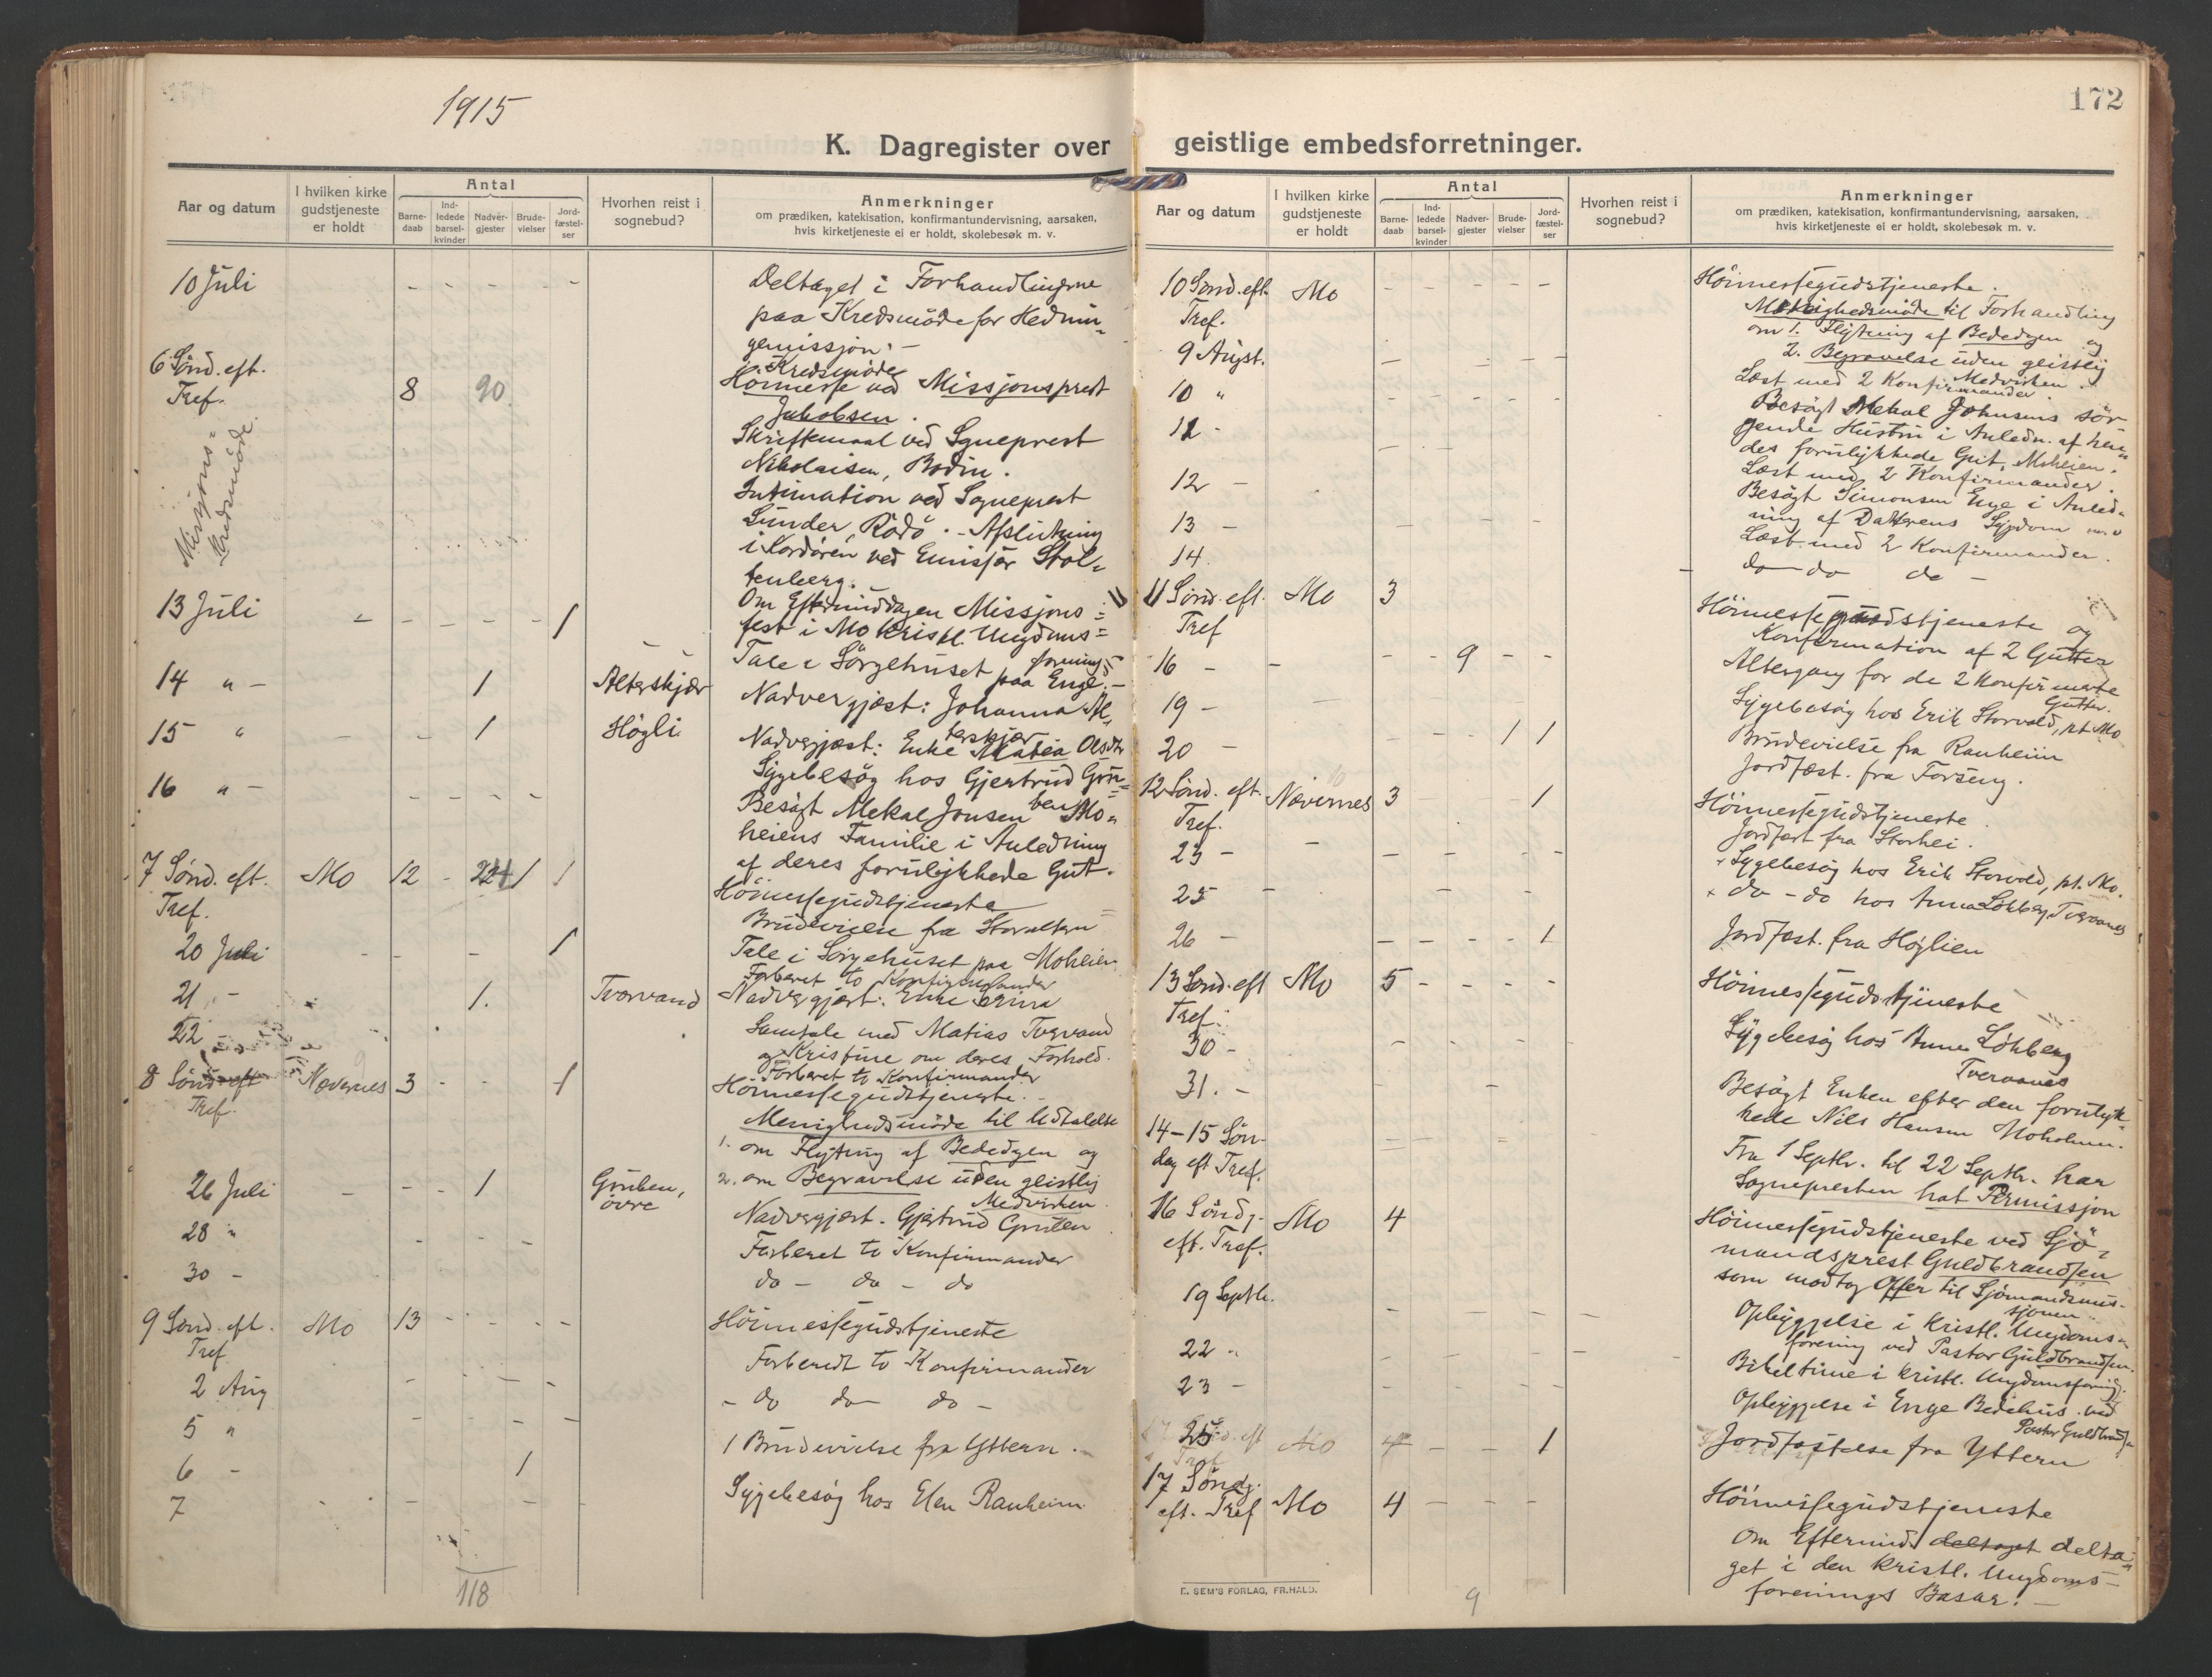 1915
172
K. Dagregister over geistlige embedsforretninger.
Aar og datum
I hvilken kirke gudstjeneste er holdt
Antal
Barnedaab
Indledede barselkvinder
Nadvergjester
Brudevielser
Jordfæstelser
Hvorhen reist i sognebud?
Anmerkninger
om prædiken, katekisation, konfirmantundervisning, aarsaken,
hvis kirketjeneste ei er holdt, skolebesøk m. v.
10 Juli - - - - - Deltaget i Forhandlingerne
paa Kredsmöde for Hednin-
gemissjon. -
6 Sönd. eft. Kredsmöde
Tref. 8 90 Höimesse ved Missjonsprest
Jakobsen.
Missjons=
kredsmöde.
Skriftemaal ved Sgneprest
Nikolaisen, Bodin.
Intimation ved Sogneprest
Sunder, Rödö. - Afslutning
i Kordören ved Emisjær Stol=
tenberg.
13 Juli - - - - - 1 Om Eftermiddagen Missjons=
fest i Mo kristl. Ungdoms=
forening
Tale i Sörgehuset paa Enge. -
14 " - 1 Alterskjær Nadvergjæst: Johanna Al-
terskjær
15 " - - 1 Högli Nadvergjæst: Enke Matea Olsdtr
16 " - - - - - Sygebesög hos Gjertrud Gru=
ben
Besögt Mekal Jonsen Mo=
heiens Familie i Anledning
af deres forulykkede Gut.
7 Sönd. eft. Mo 12 - 1 1 Höimessegudstjeneste
Tref. Brudevielse fra Storaltern
20 Juli - - - 1 Tale i Sörgehuset paa Moheien
Forberet to Konfirmander
21 - 1. Tværvand Nadvergjæst. Enke
22 Samtale med Matias Tværvand
og Kristine om deres Forhold.
Forberet to Konfirmander
8 Sönd eft Nævernes 3 - - - 1 Höimessegudstjeneste. -
Tref. Menighedsmöde til Udtalelse
1. om Flytning af Bededgen og
2. om Begravelse uden geistlig
Medvirken.
26 Juli - - 1 Gruben, övre Nadvergjæst. Gjertrud Gruben
28 " - - - Forberet to Konfirmander
30 - do - do - do
9 Sönd. eft. Mo 13 - - - - Höimessegudstjeneste
Tref
2 Aug - - - - Forberedt to Konfirmander
5 " - - - - - - do do do -
6 - 1 1 Brudevielse fra Ytteren. -
7 - - - Sygebesög hos Elen Rauheim
118
Aar og datum
I hvilken kirke gudstjeneste er holdt
Antal
Barnedaab
Indledede barselkvinder
Nadvergjester
Brudevielser
Jordfæstelser
Hvorhen reist i sognebud?
Anmerkninger
om prædiken, katekisation, konfirmantundervisning, aarsaken,
hvis kirketjeneste ei er holdt, skolebesøk m. v.
10 Sönd. eft. Mo - - - - - Höimessegudstjeneste.
Tref. Menighedsmöde til Forhandling
om 1. Flytning af Bededgen og
2. Begravelse uden geistlig
Medvirken.
9 Augst. - - - Læst med 2 Konfirmander.
10 " - - - - - Besögt Mekal Johnsens sör-
gende Hustru i Anledn. af hen-
des forulykkede Gut, Moheien.
12 - Læst med 2 Konfirmander.
12 - Besögt Simonsen Enge i Anled-
ning af Datterens Sygdom
13 - Læst med 2 Konfirmander.
14. do do do -
11 Sönd. eft. Mo 3 Höimessegudstjeneste og
Tref Konfirmation af 2 Gutter
16 - - 9 - - Altergang for de 2 konfirmerte
Gutter.
19 - - Sygebesög hos Erik Storvold, pt. Mo
20 - - - - 1 1 Brudevielse fra Rauheim
Jordfæst. fra Forseng.
12 Sönd. eft. Nævernes 3 1 Höimessegudstjeneste.
Tref. Jordfæst fra Storhei.
23 - - - - - - Sygebesög hos Erik Storvold, pt. Mo.
25 - - - - do - do hos Anna Lökberg, Tvervanes
26 - - - - - 1 Jordfæst. fra Höglien
13 Sönd. eft Mo 5 - - - - Höimessegudstjeneste
Tref.
30 - - - - - Sygebesög hos Anna Lökberg
Tvervanes
31. - - - Besögt Enken efter den forulyk-
kede Nils Hansen Moholmen.
14-15 Sön- Fra 1 Septbr. til 22 Septbr. har
dag eft Tref. Sognepresten hat Permissjon
16 Söndg. Mo 4 Höimessegudstjeneste ved Sjö-
eft. Tref. mandsprest Guldbrandsen
som modtog Offer til Sjömandsmis-
sjonen.
19 Septbr. - - - - - Opbyggelse i kristl. Ungdoms-
forening ved Pastor Guldbrandsen.
22 " - - - - - Bibeltime i kristl. Ungdomsforening.
23 - - - - - Opbyggelse i Enge Bedehus ved
Pastor Guldbrandsen
25 - - 1 Jordfæstelse fra Ytteren
17 Söndg. Mo 4 - - - - Höimessegudstjeneste
eft. Tref
Om Eftermid. deltaget delta-
get i den kristl. Ungdoms-
forenings Basar. -
E. SEM'S FORLAG, FR.HALD.
9